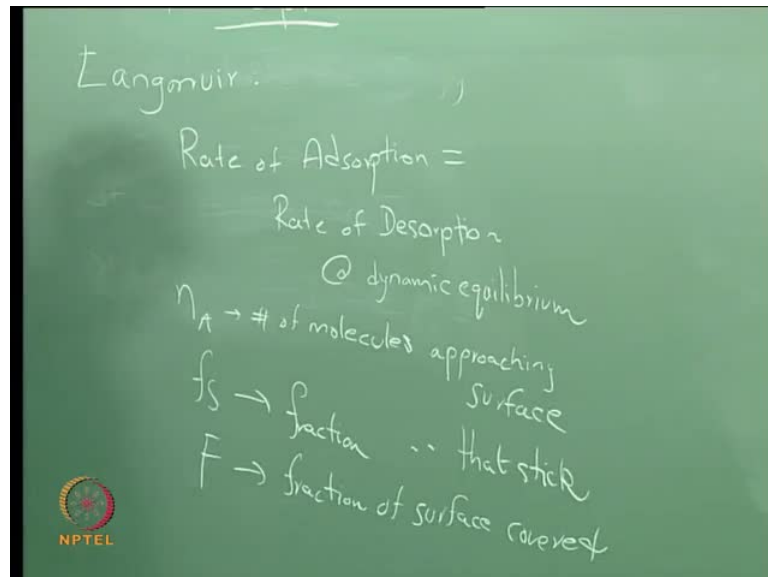 Langmuir.
Rate of Adsorption =
Rate of Desorption
@ dynamic equilibrium
n_A → # of molecules approaching
surface
fs → fraction " that stick
F → fraction of surface covered
NPTEL